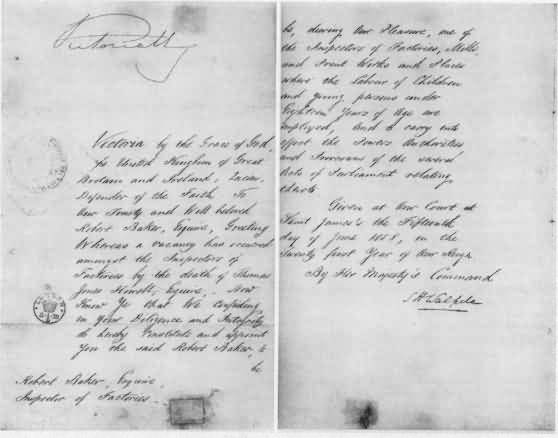 Victoria R
Victoria by the Grace of God,
of the United Kingdom of Great
Britain and Ireland, Queen,
Defender of the Faith To
Our Trusty and Well beloved
Robert Baker, Esquire, Greeting
Whereas a vacancy has occurred
amongst the Inspectors of
Factories by the death of Thomas
Jones Howell, Esquire, Now
Know Ye that We confiding
in your Diligence and Integrity
do hereby Constitute and appoint
You the said Robert Baker, to
be
Robert Baker, Esquire
Inspector of Factories.
be, during Our Pleasure, one of
the Inspectors of Factories, Mills
and Print Works and Places
where the Labour of Children
and young persons under
Eighteen Years of Age are
employed, And to carry into
effect the Powers Authorities
and Provisions of the several
Acts of Parliament relating
thereto
Given at Our Court at
Saint James's the Fifteenth
day of June 1858, in the
Twenty first Year of Our Reign
By Her Majesty's Command
S H Walpole